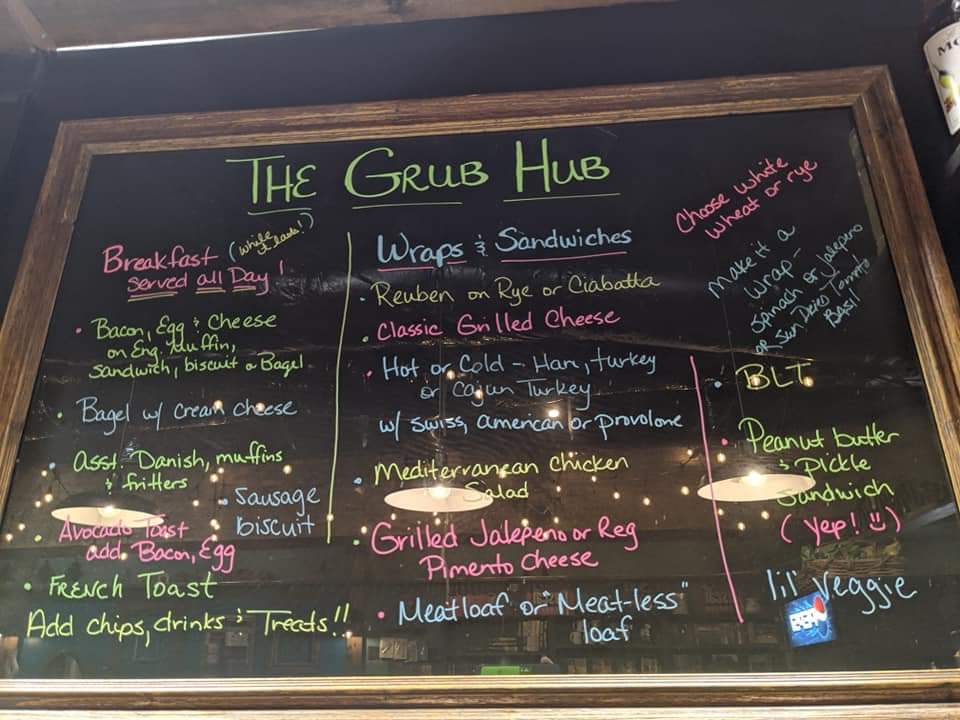 THE GRUB HUB
Breakfast (while it lasts!)
served all Day!
• Bacon, Egg & Cheese
on Eng. Muffin,
sandwich, biscuit or Bagel
• Bagel w/ cream cheese
• Asst. Danish, muffins
& fritters
• Sausage
biscuit
• Avocado Toast
add Bacon, Egg
• FRENCH Toast
Add chips, drinks & Treats!!
Wraps & Sandwiches
• Reuben on Rye or Ciabatta
• Classic Grilled Cheese
• Hot or Cold - Ham, turkey
or Cajun Turkey
w/ swiss, american or provolone
• Mediterranean Chicken
Salad
• Grilled Jalepeno or Reg
Pimento Cheese
• Meatloaf or "Meat-less"
loaf
Choose white
wheat or rye
Make it a
Wrap -
Spinach or Jalapeno
or Sun Dried Tomato
BASIL
• BLT
• Peanut butter
& Pickle
Sandwich
(Yep!)
lil' veggie